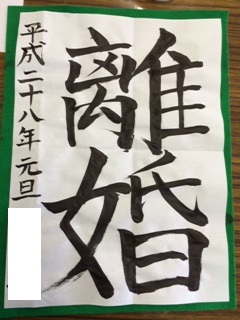 離婚
平成二十八年元旦